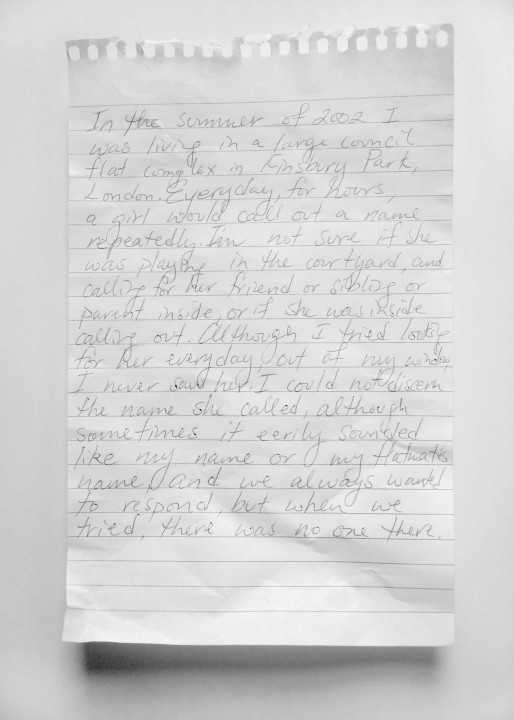 In the summer of 2002 I
was living in a large council
flat complex in Finsbury Park,
London. Everyday, for hours,
a girl would call out a name
repeatedly. I'm not sure if she
was playing in the courtyard, and
calling for her friend or sibling or
parent inside, or if she was inside
calling out. Although I tried looking
for her everyday, out of my window,
I never saw her. I could not discern
the name she called, although
sometimes it eerily sounded
like my name or my flatmate's
name, and we always wanted
to respond, but when we
tried, there was no one there.